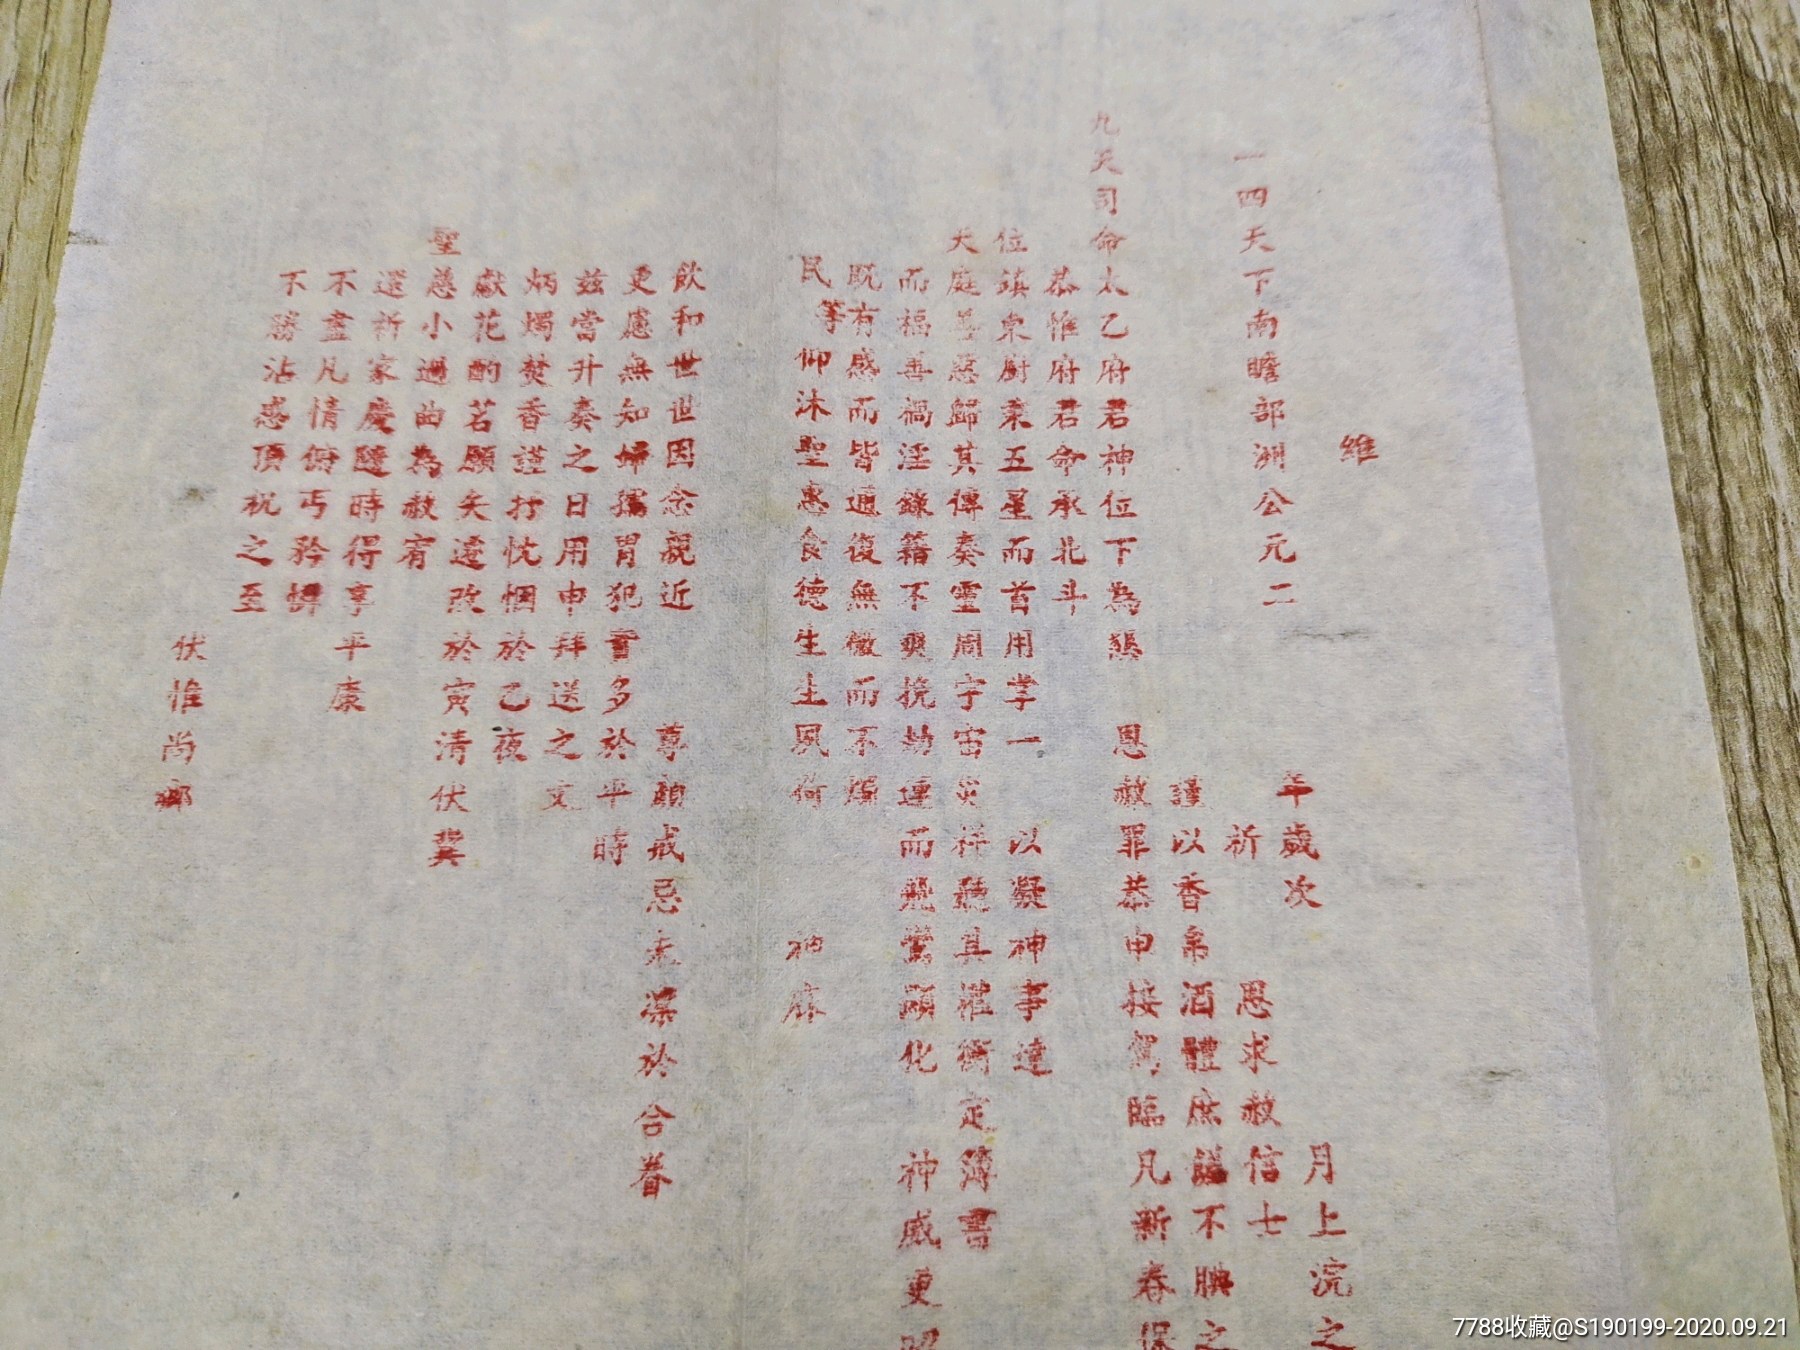 維
一四天下南瞻部洲公元二 年歲次 月上浣之
祈 恩求赦信士
謹以香帛酒醴庶饈不腆之
九天司命太乙府君神位下為懇 恩赦罪恭申接駕臨凡新春保
恭惟府君命承北斗
位鎮東廚秉五星而首用掌一 以凝神事達
天庭善惡歸其傳奏靈周宇宙災祥聽其權衡定簿書
而福善禍淫錄籍不爽挽劫運而飛鸞顯化 神威更昭
既有感而皆通復無微而不燭
民等仰沐聖惠食德生生夙荷 神庥
飲和世世因念親近 尊顏戒忌未深於合眷
更慮無知婦孺冒犯實多於平時
茲當升奏之日用申拜送之文
炳燭焚香謹抒忱悃於乙夜
獻花酌茗願矢遷改於寅清伏冀
聖慈小過曲為赦宥
還祈家慶隨時得享平康
不盡凡情俯丐矜憐
不勝沾感頂祝之至
伏惟尚鄉
7788收藏@S190199-2020.09.21